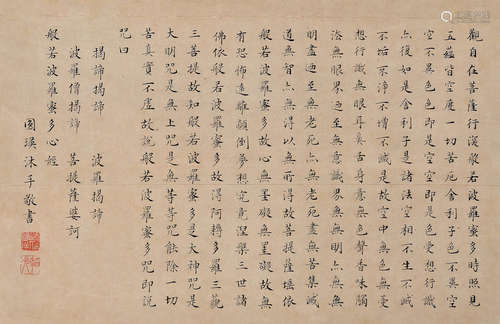 觀自在菩薩行深般若波羅蜜多時照見
五蘊皆空度一切苦厄舍利子色不異空
空不異色色即是空空即是色受想行識
亦復如是舍利子是諸法空相不生不滅
不垢不淨不增不減是故空中無色無受
想行識無眼耳鼻舌身意無色聲香味觸
法無眼界乃至無意識界無無明亦無無
明盡乃至無老死亦無老死盡無苦集滅
道無智亦無得以無所得故菩提薩埵依
般若波羅蜜多故心無罣礙無罣礙故無
有恐怖遠離顛倒夢想究竟涅槃三世諸
佛依般若波羅蜜多故得阿耨多羅三藐
三菩提故知般若波羅蜜多是大神咒是
大明咒是無上咒是無等等咒能除一切
苦真實不虛故說般若波羅蜜多咒即說
咒曰
揭諦揭諦 波羅揭諦
波羅僧揭諦 菩提薩婆訶
般若波羅蜜多心經
圓瑛沐手敬書